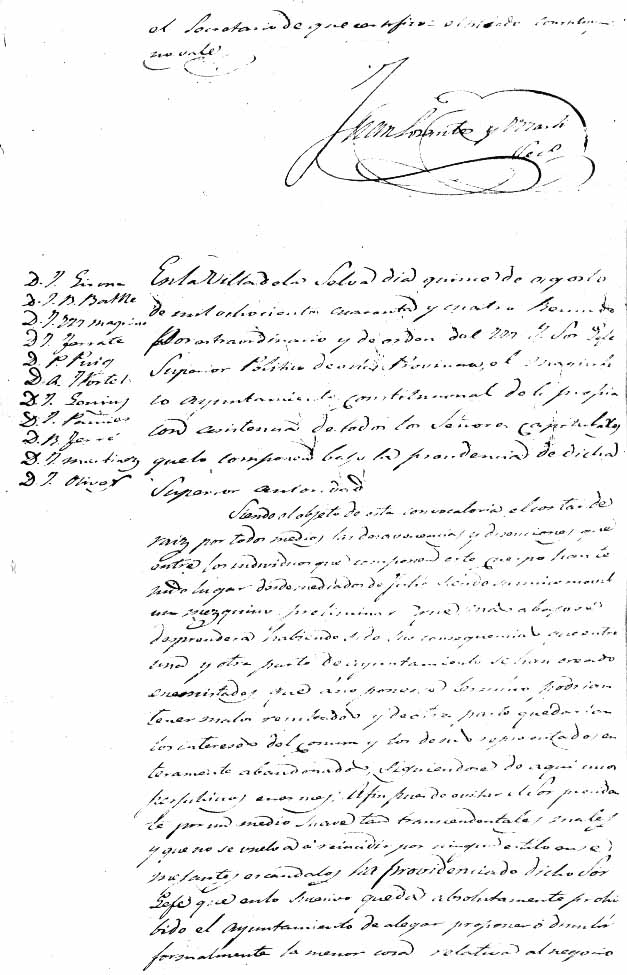 el Secretario de que certifico = el
no vale
Juan y
Sec.o
D. J. Girona
D. J. B. Batlle
D. J.
D. J. Ferrate
D. P. Puig
D. A. Hortet
D. J.
D. J.
D. B. Ferré
D. J. Martinez
D. J. Olives
En la Villa de la Selva dia quince de agosto
de mil ochocientos cuarenta y cuatro Reunido
por extraordinario y de orden del M. I. Sor Gefe
Superior Politico de esta Provincia, el
Ayuntamiento constitucional de la propia
con asistencia de todos los Señores capitulares
que lo componen bajo la presidencia de dicha
Superior autoridad
Siendo el objeto de esta convocatoria el cortar de
raiz por todos medios las desavenencias y disenciones que
entre los individuos que componen este cuerpo han te
nido lugar desde mediados de Julio siendo su unico movil
un mezquino preliminar que mas abajo se
desprenderá habiendo sido su consequencia que entre
una y otra parte de ayuntamiento se han creado
enemistades que á no poner termino podrian
tener malos resultados y de otra parte quedarian
los intereses del comun y los de sus representados en
teramente abandonados, siguiendose de aqui unos
perjuicios enormes: A fin pues de evitar el Sor presiden
te por un medio suave tan transcendentales males
y que no se vuelva á reincidir por ningun estilo en se
mejantes escándalos ha providenciado dicho Sor
Gefe que en lo sucesivo queda absolutamente prohi
bido el ayuntamiento de alegar proponer ó
formalmente la menor cosa relativa al negocio